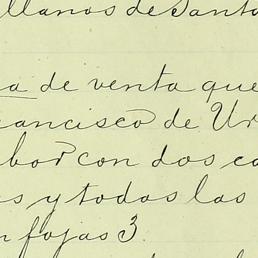 llanos de Santa
a de venta que
rancisco de Ur
bor con dos ca
s y todas las
n fojas 3